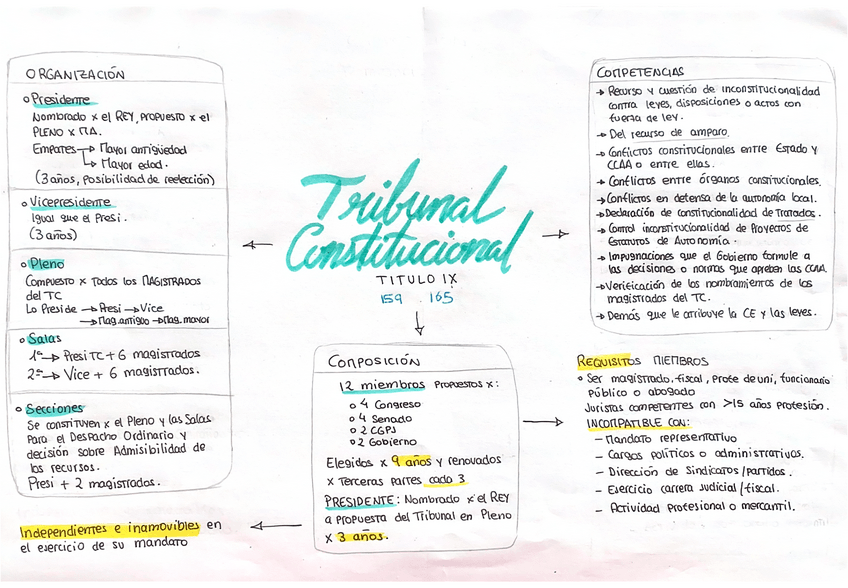 ORGANIZACIÓN
Presidente
Nombrado x el REY, propuesto x el
PLENO x MA.
Empates → Mayor antigüedad
→ Mayor edad.
(3 años, posibilidad de reelección)
Vicepresidente
Igual que el Presi.
(3 años)
Pleno
Compuesto x todos los MAGISTRADOS
del TC
Lo Preside → Presi → Vice
→ Mag. antiguo → Mag. mayor
Salas
1ª → Presi TC + 6 magistrados
2ª → Vice + 6 magistrados.
Secciones
Se constituyen x el Pleno y las Salas
para el Despacho Ordinario y
decisión sobre Admisibilidad de
los recursos.
Presi + 2 magistrados.
Independientes e inamovibles en
el ejercicio de su mandato
Tribunal
Constitucional
TITULO IX
159 . 165
COMPOSICIÓN
12 miembros propuestos x:
4 Congreso
4 Senado
2 CGPJ
2 Gobierno
Elegidos x 9 años y renovados
x terceras partes cada 3
PRESIDENTE: Nombrado x el REY
a propuesta del Tribunal en Pleno
x 3 años.
COMPETENCIAS
→ Recurso y cuestión de inconstitucionalidad
contra leyes, disposiciones o actos con
fuerza de ley.
→ Del recurso de amparo.
→ Conflictos constitucionales entre Estado y
CCAA o entre ellas.
→ Conflictos entre órganos constitucionales.
→ Conflictos en defensa de la autonomía local.
→ Declaración de constitucionalidad de Tratados.
→ Control inconstitucionalidad de Proyectos de
Estatutos de Autonomía.
→ Impugnaciones que el Gobierno formule a
las decisiones o normas que aprueben las CCAA.
→ Verificación de los nombramientos de los
magistrados del TC.
→ Demás que le atribuye la CE y las leyes.
REQUISITOS MIEMBROS
Ser magistrado, fiscal, profe de uni, funcionario
público o abogado
Juristas competentes con >15 años profesión.
INCOMPATIBLE CON:
– Mandato representativo
– Cargos políticos o administrativos.
– Dirección de Sindicatos/partidos.
– Ejercicio carrera judicial/fiscal.
– Actividad profesional o mercantil.